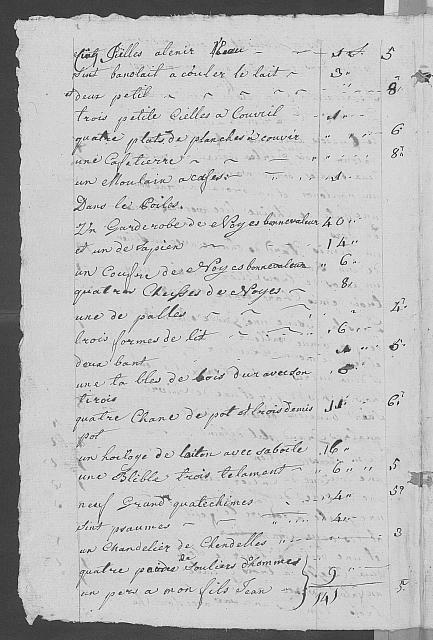 sinq Sielles alenir l'eau ~ ~ 1 " 5
sint banolait a couler le lait ~ 3 "
et deux petit ~ ~ ~ ~ ~ " " 8
trois petite Sielles a Couvril 1 "
quatre plats de planches a couvir " " 6
une Cafetierre ~ ~ ~ " " 8
un Moulain a cafes. ~ 1
Dans le Poiles.
Un Garderobe de Noyes bonnevaleur 40 "
et un de sapien ~ 14 "
un Couffre de Noyes bonnevaleur " 6 "
quatres Cheisses de Noyes ~ 8
une de palles ~ ~ ~ " 4
trois formes de lit ~ ~ " 6 "
deux bant ~ ~ 1 " 5
une ta bles de bois dur avec son 8 "
tirois
quatre Chane de pot et trois demis 11 " 6
pot
un horloge de laiton avec saboite 16 "
une Blible trois telament ~ " 6 " 5
neuf Grand quatechimes " 4 " 5
sint psaumes ~ ~ ~ 4
un Chandelier de Chendelles ~ 3
quatre peaires de Souliers d'hommes
un pers a mon fils Jean } 9
141 5